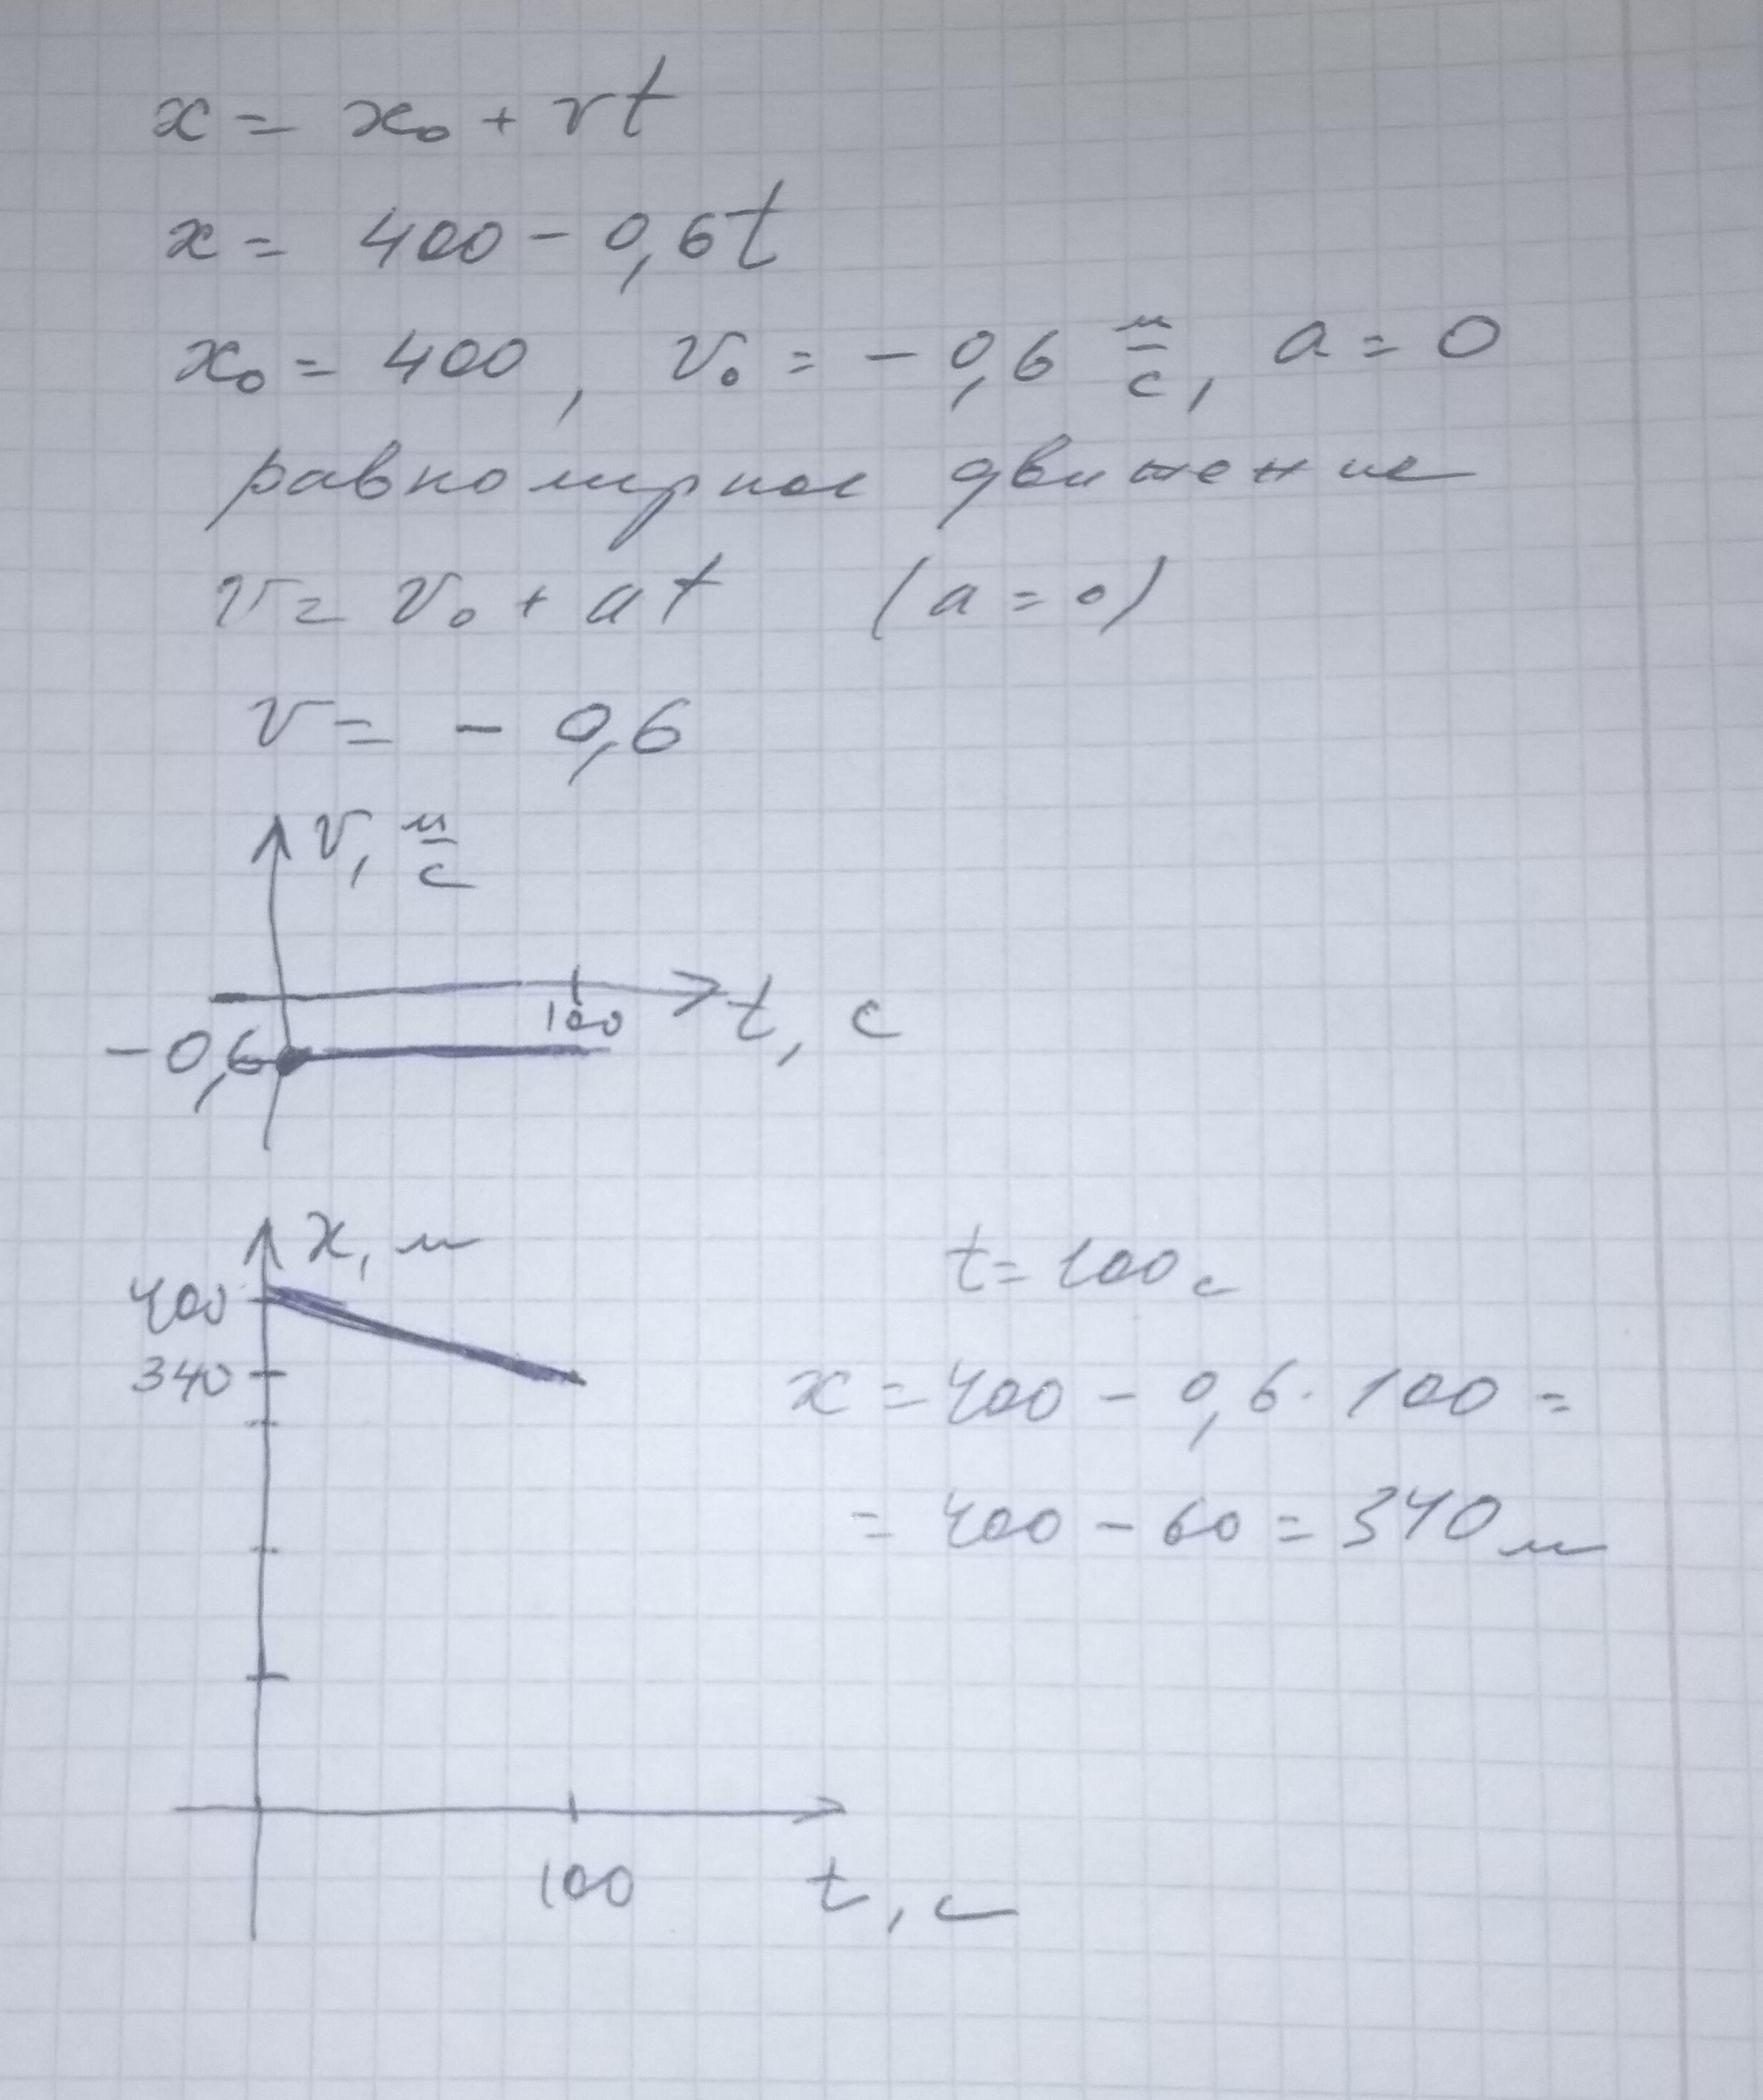 x = x₀ + vt
x = 400 - 0,6t
x₀ = 400, v₀ = - 0,6 м/с, a = 0
равномерное движение
v = v₀ + at (a = 0)
v = - 0,6
v, м/с
100
t, с
-0,6
x, м
400
340
t = 100 с
x = 400 - 0,6 · 100 =
= 400 - 60 = 340 м
100
t, с